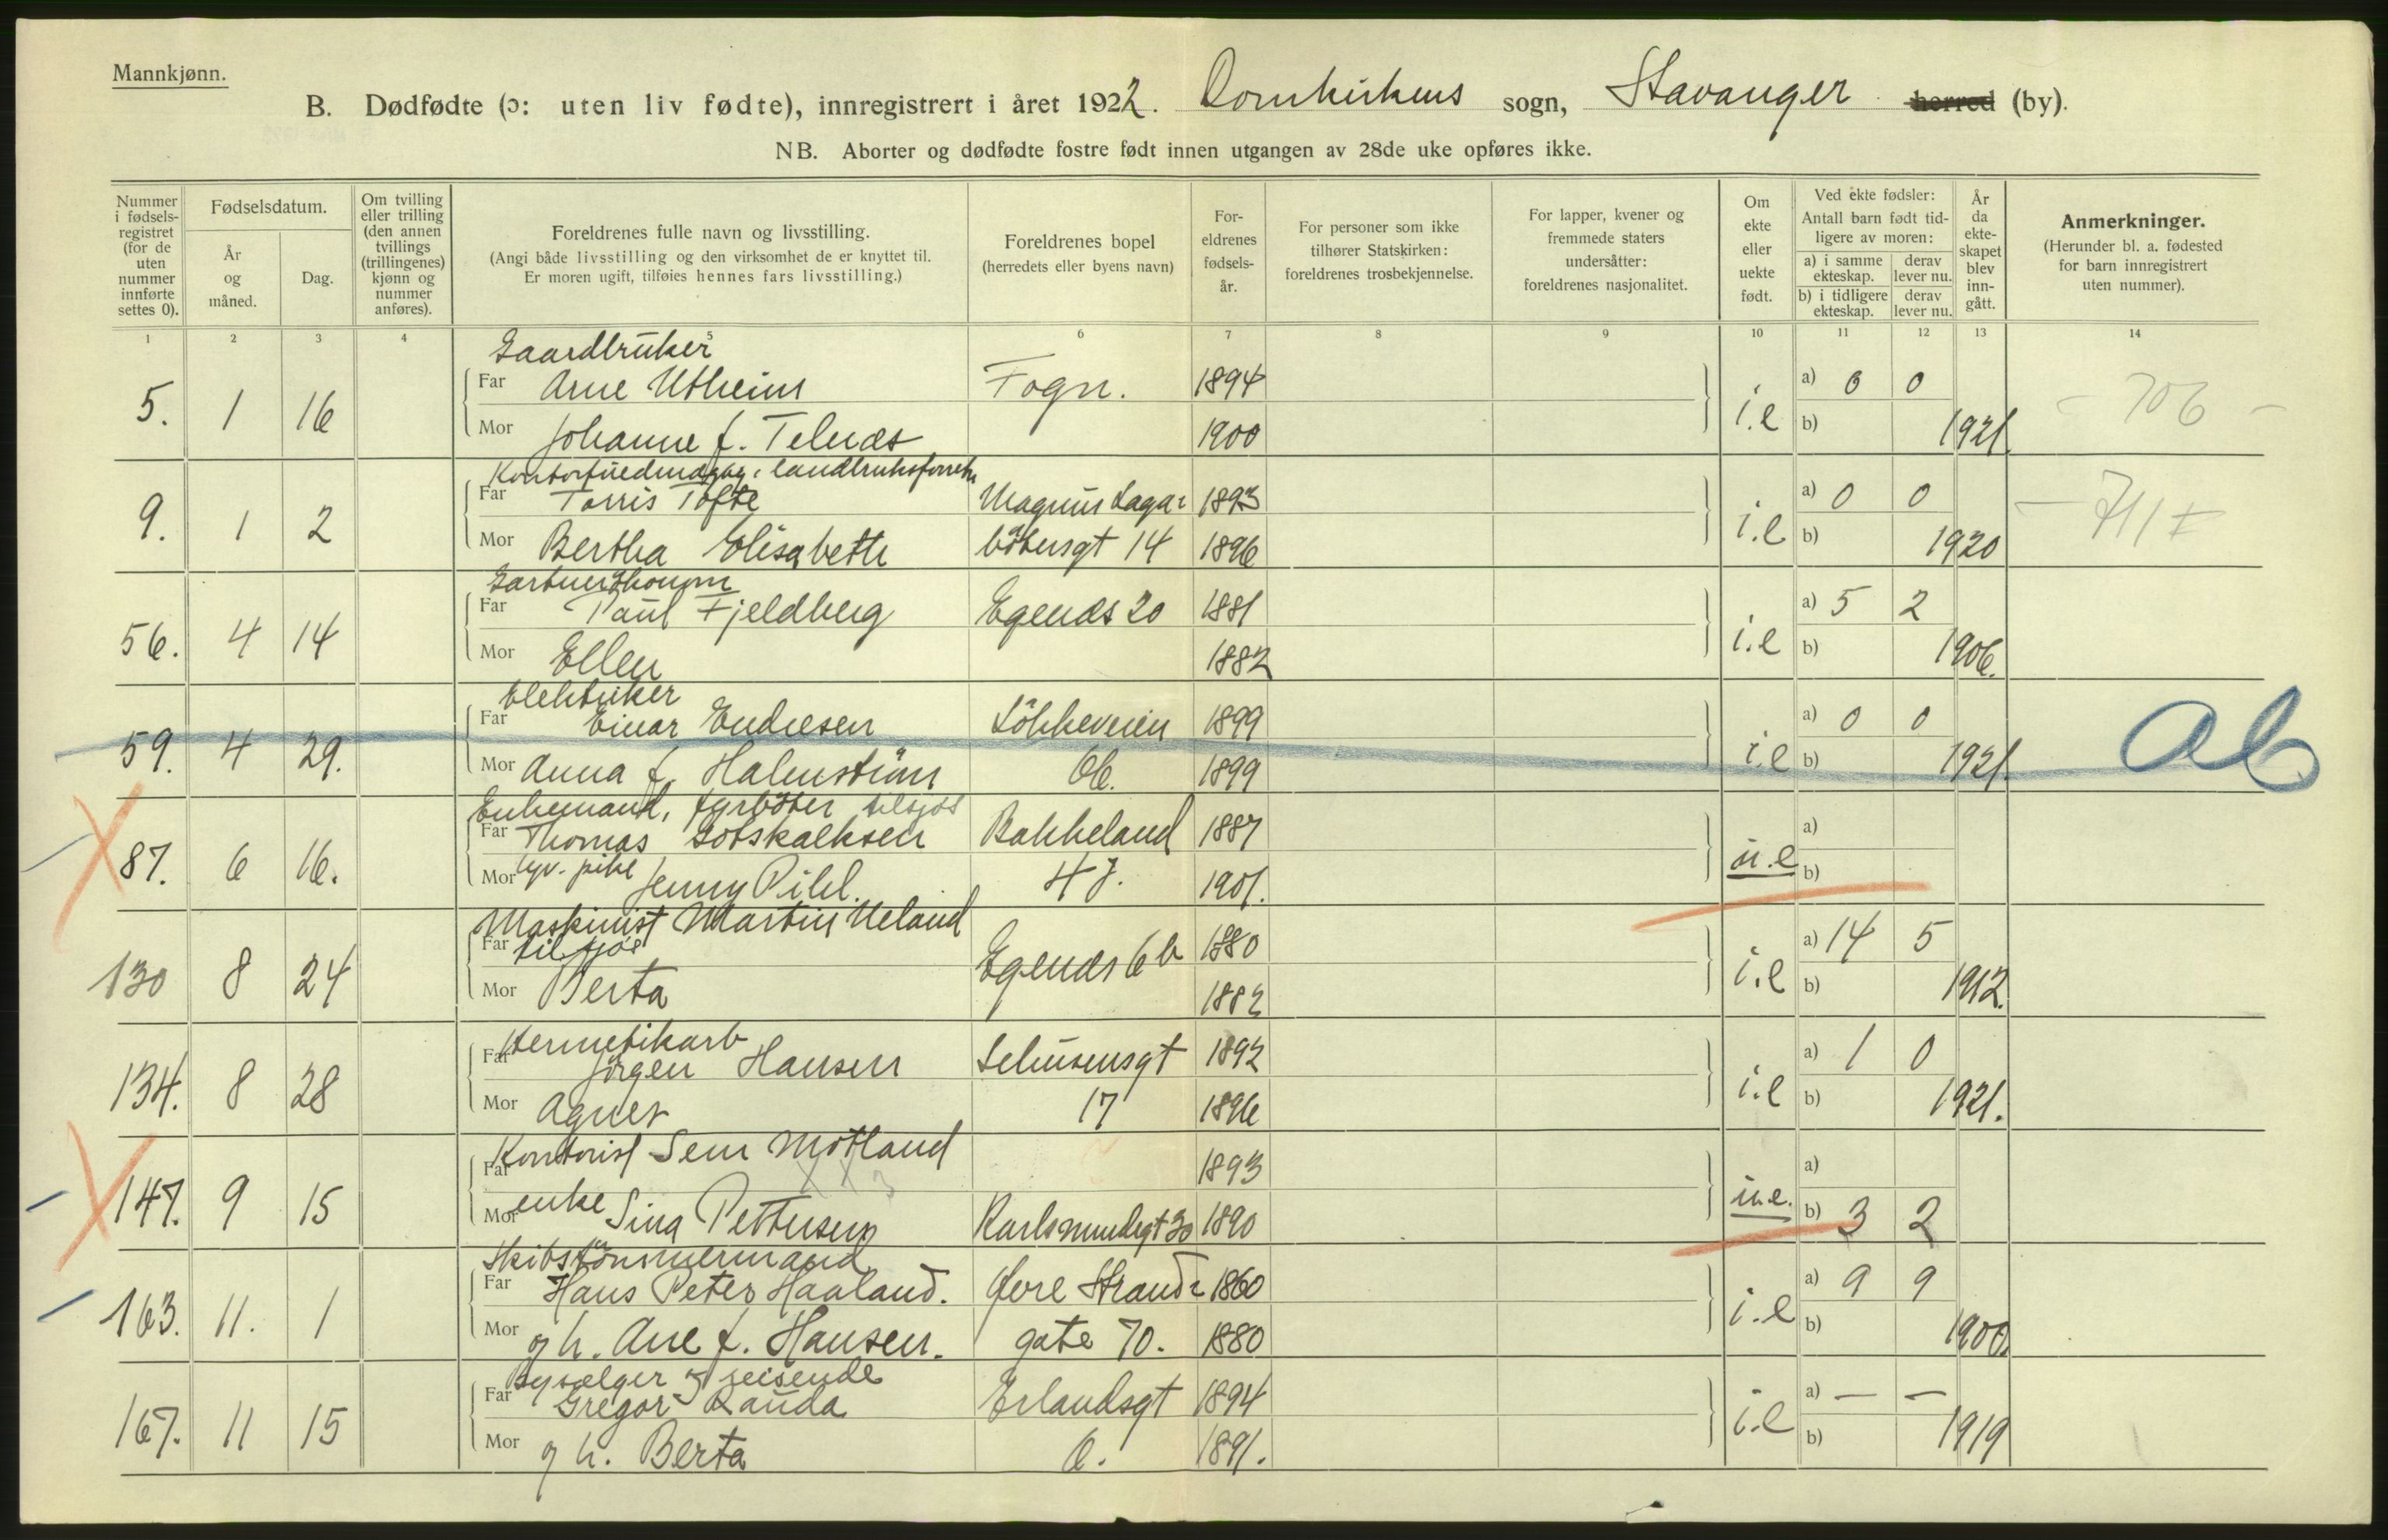 Mannkjønn.
B. Dødfødte (ɔ: uten liv fødte), innregistrert i året 1922. Domkirkens sogn, Stavanger herred (by).
NB. Aborter og dødfødte fostre født innen utgangen av 28de uke opføres ikke.
Nummer i fødselsregistret (for de uten nummer innførte settes 0).
Fødselsdatum.
År og måned.
Dag.
Om tvilling eller trilling (den annen tvillings (trillingenes) kjønn og nummer anføres).
Foreldrenes fulle navn og livsstilling.
(Angi både livsstilling og den virksomhet de er knyttet til. Er moren ugift, tilføies hennes fars livsstilling.)
Foreldrenes bopel (herredets eller byens navn)
Foreldrenes fødselsår.
For personer som ikke tilhører Statskirken: foreldrenes trosbekjennelse.
For lapper, kvener og fremmede staters undersåtter: foreldrenes nasjonalitet.
Om ekte eller uekte født.
Ved ekte fødsler: Antall barn født tidligere av moren:
a) i samme ekteskap. derav lever nu.
b) i tidligere ekteskap. derav lever nu.
År da ekteskapet blev inngått.
Anmerkninger.
(Herunder bl. a. fødested for barn innregistrert uten nummer).
1 2 3 4 5 6 7 8 9 10 11 12 13 14
Gaardbruker
5. 1 16 Far Arne Utheim Fogn. 1894 i.e a) 0 0 - 706 -
Mor Johanne f. Telnæs 1900 b) 1921.
9. 1 2 Far Torris Tofte Magnus Laga- 1893 i.e a) 0 0 - 711 I
Mor Bertha Elisabeth bøtersgt 14 1896 b) 1920
56. 4 14 Far Paul Fjeldberg Egenæs 20 1881 i.e a) 5 2
Mor Ellen 1882 b) 1906.
Elektriker
59. 4 29. Far Einar Endresen Løkkeveien 1899 i.e a) 0 0 Ab
Mor Anna f. 66. 1899 b) 1921.
Enkemand, fyrbøter tilsjøs
87. 6 16. Far Thomas Gotskalksen Bakkeland 1887 u.e a)
Mor tyv. pike Jenny Pihl. 47. 1901. b)
Maskinist Martin Ueland
130 8 24 Far tilsjøs Egenæs 6b 1880 i.e a) 14 5
Mor Berta 1882 b) 1912.
Hermetikarb
134. 8 28 Far Jørgen Hansen 1892 i.e a) 1 0
Mor Agnes 17 1896 b) 1921.
Kontorist Sem Motland
147. 9 15 Far 1893 u.e. a)
Mor enke Sina Pettersen Karlsmindegt 30 1890 b) 3 2
Skibstømmermand
163. 11. 1 Far Hans Peter Haaland. Øvre Strand- 1860 i.e a) 9 9
Mor og h. Ane f. Hansen. gate 70. 1880 b) 1900.
Bysælger og reisende
167. 11 15 Far Gregor Rauda Erlandsgt 1894 i.e a) — —
Mor og h. Berta 6. 1891. b) 1919